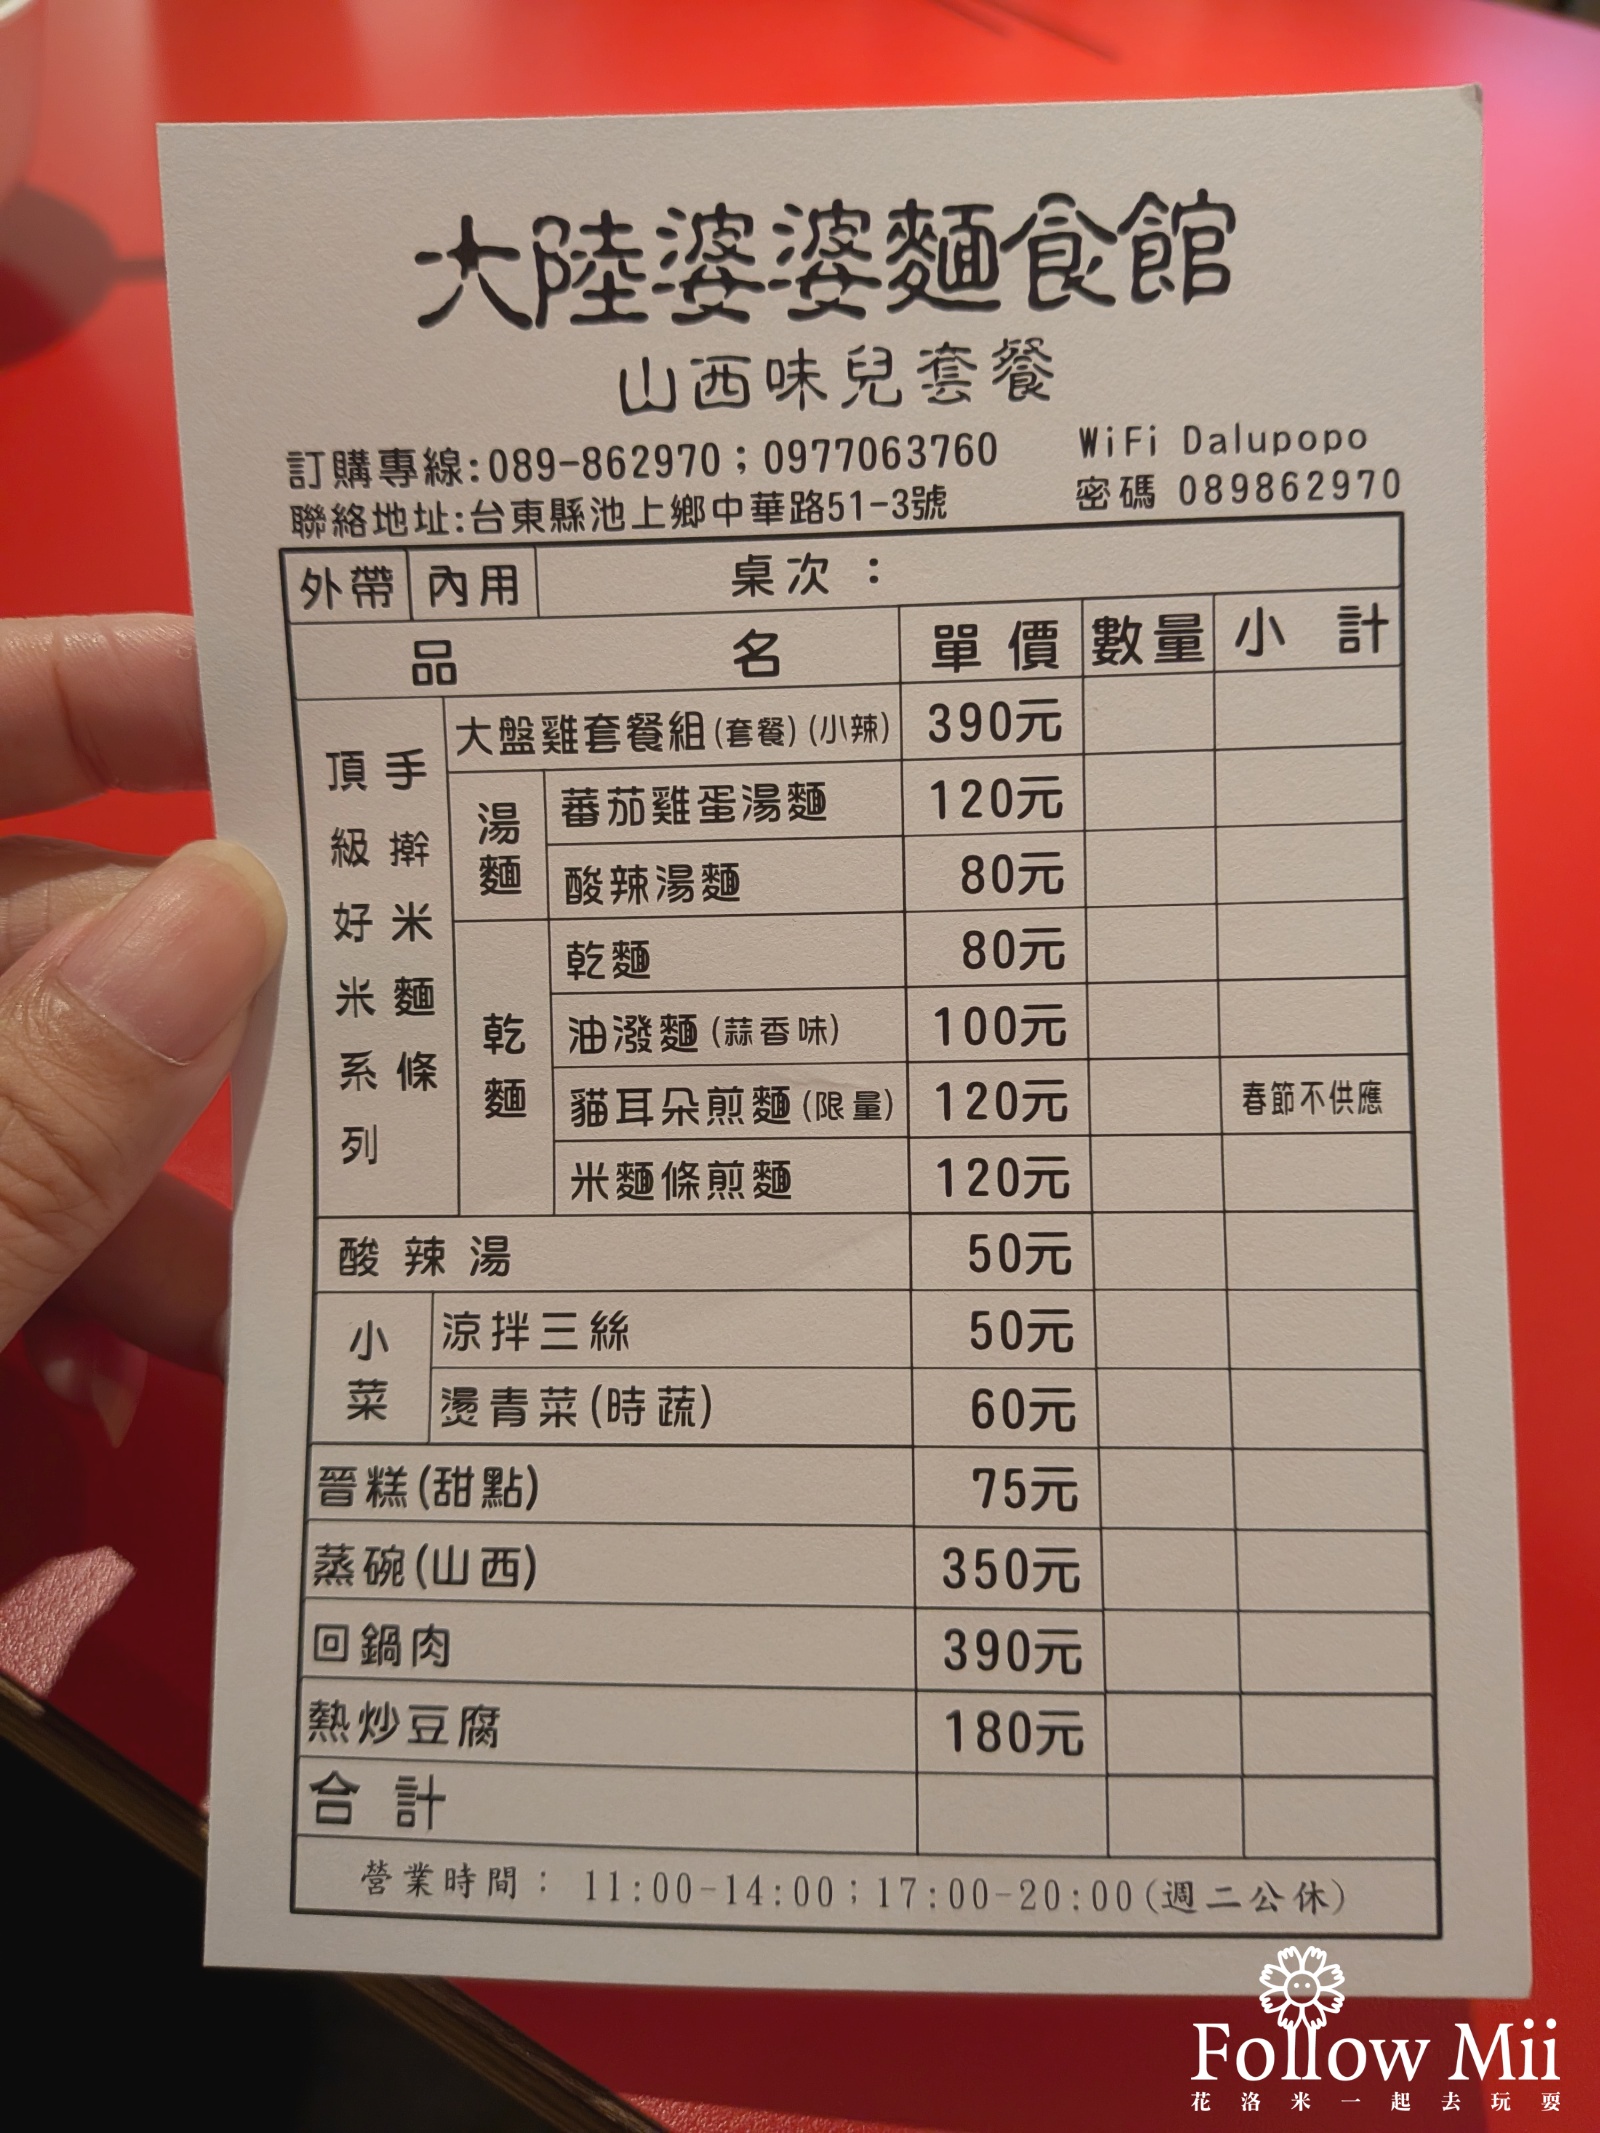 大陸婆婆麵食館
山西味兒套餐
訂購專線:089-862970；0977063760
WiFi Dalupopo
聯絡地址:台東縣池上鄉中華路51-3號
密碼 089862970
外帶 內用 桌次：
品名 單價 數量 小計
頂級好米米系列
手擀米麵條
大盤雞套餐組(套餐)(小辣) 390元
湯麵
蕃茄雞蛋湯麵 120元
酸辣湯麵 80元
乾麵
乾麵 80元
油潑麵(蒜香味) 100元
貓耳朵煎麵(限量) 120元 春節不供應
米麵條煎麵 120元
酸辣湯 50元
小菜
涼拌三絲 50元
燙青菜(時蔬) 60元
晉糕(甜點) 75元
蒸碗(山西) 350元
回鍋肉 390元
熱炒豆腐 180元
合計
營業時間： 11:00-14:00；17:00-20:00(週二公休)
Follow Mii
花洛米一起去玩耍